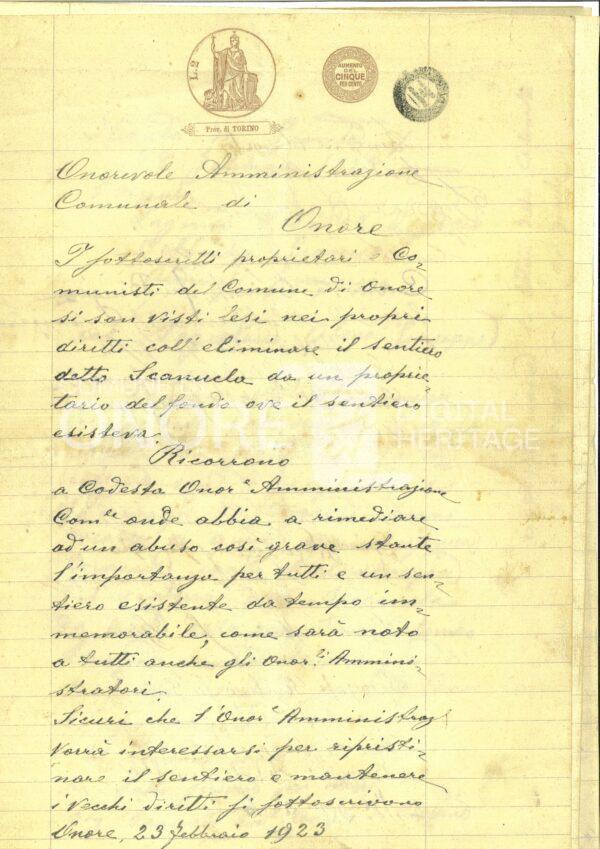 L. 2
Prov. di TORINO
AUMENTO
DEL
CINQUE
PER CENTO
Onorevole Amministrazione
Comunale di
Onore
I sottoscritti proprietari e Co-
munisti del Comune di Onore
si son visti lesi nei propri
diritti coll'eliminare il sentiero
detto Scanuela da un proprie-
tario del fondo ove il sentiero
esisteva.
ONORE DIGITAL
HERITAGE
Ricorrono
a Codesta Onor.e Amministrazione
Com.le onde abbia a rimediare
ad un abuso così grave stante
l'importanza per tutti e un sen-
tiero esistente da tempo im-
memorabile, come sarà noto
a tutti anche gli Onor.li Ammini-
stratori.
Sicuri che l'Onor.e Amministraz
vorrà interessarsi per ripristi-
nare il sentiero e mantenere
i vecchi diritti si sottoscrivono
Onore, 23 febbraio 1923